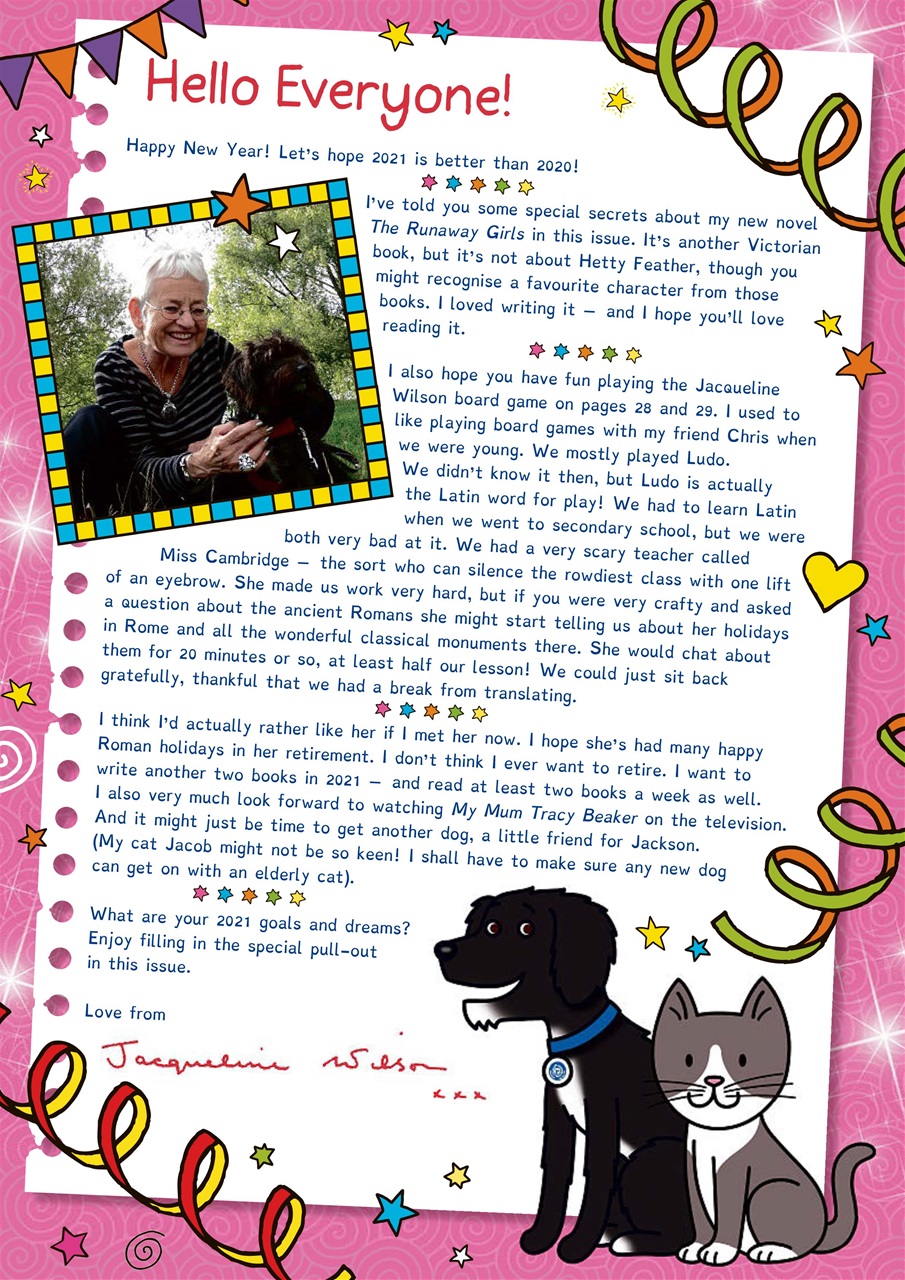 Hello Everyone!
Happy New Year! Let's hope 2021 is better than 2020!
I've told you some special secrets about my new novel
The Runaway Girls in this issue. It's another Victorian
book, but it's not about Hetty Feather, though you
might recognise a favourite character from those
books. I loved writing it – and I hope you'll love
reading it.
I also hope you have fun playing the Jacqueline
Wilson board game on pages 28 and 29. I used to
like playing board games with my friend Chris when
we were young. We mostly played Ludo.
We didn't know it then, but Ludo is actually
the Latin word for play! We had to learn Latin
when we went to secondary school, but we were
both very bad at it. We had a very scary teacher called
Miss Cambridge – the sort who can silence the rowdiest class with one lift
of an eyebrow. She made us work very hard, but if you were very crafty and asked
a question about the ancient Romans she might start telling us about her holidays
in Rome and all the wonderful classical monuments there. She would chat about
them for 20 minutes or so, at least half our lesson! We could just sit back
gratefully, thankful that we had a break from translating.
I think I'd actually rather like her if I met her now. I hope she's had many happy
Roman holidays in her retirement. I don't think I ever want to retire. I want to
write another two books in 2021 – and read at least two books a week as well.
I also very much look forward to watching My Mum Tracy Beaker on the television.
And it might just be time to get another dog, a little friend for Jackson.
(My cat Jacob might not be so keen! I shall have to make sure any new dog
can get on with an elderly cat).
What are your 2021 goals and dreams?
Enjoy filling in the special pull-out
in this issue.
Love from
Jacqueline Wilson
x x x